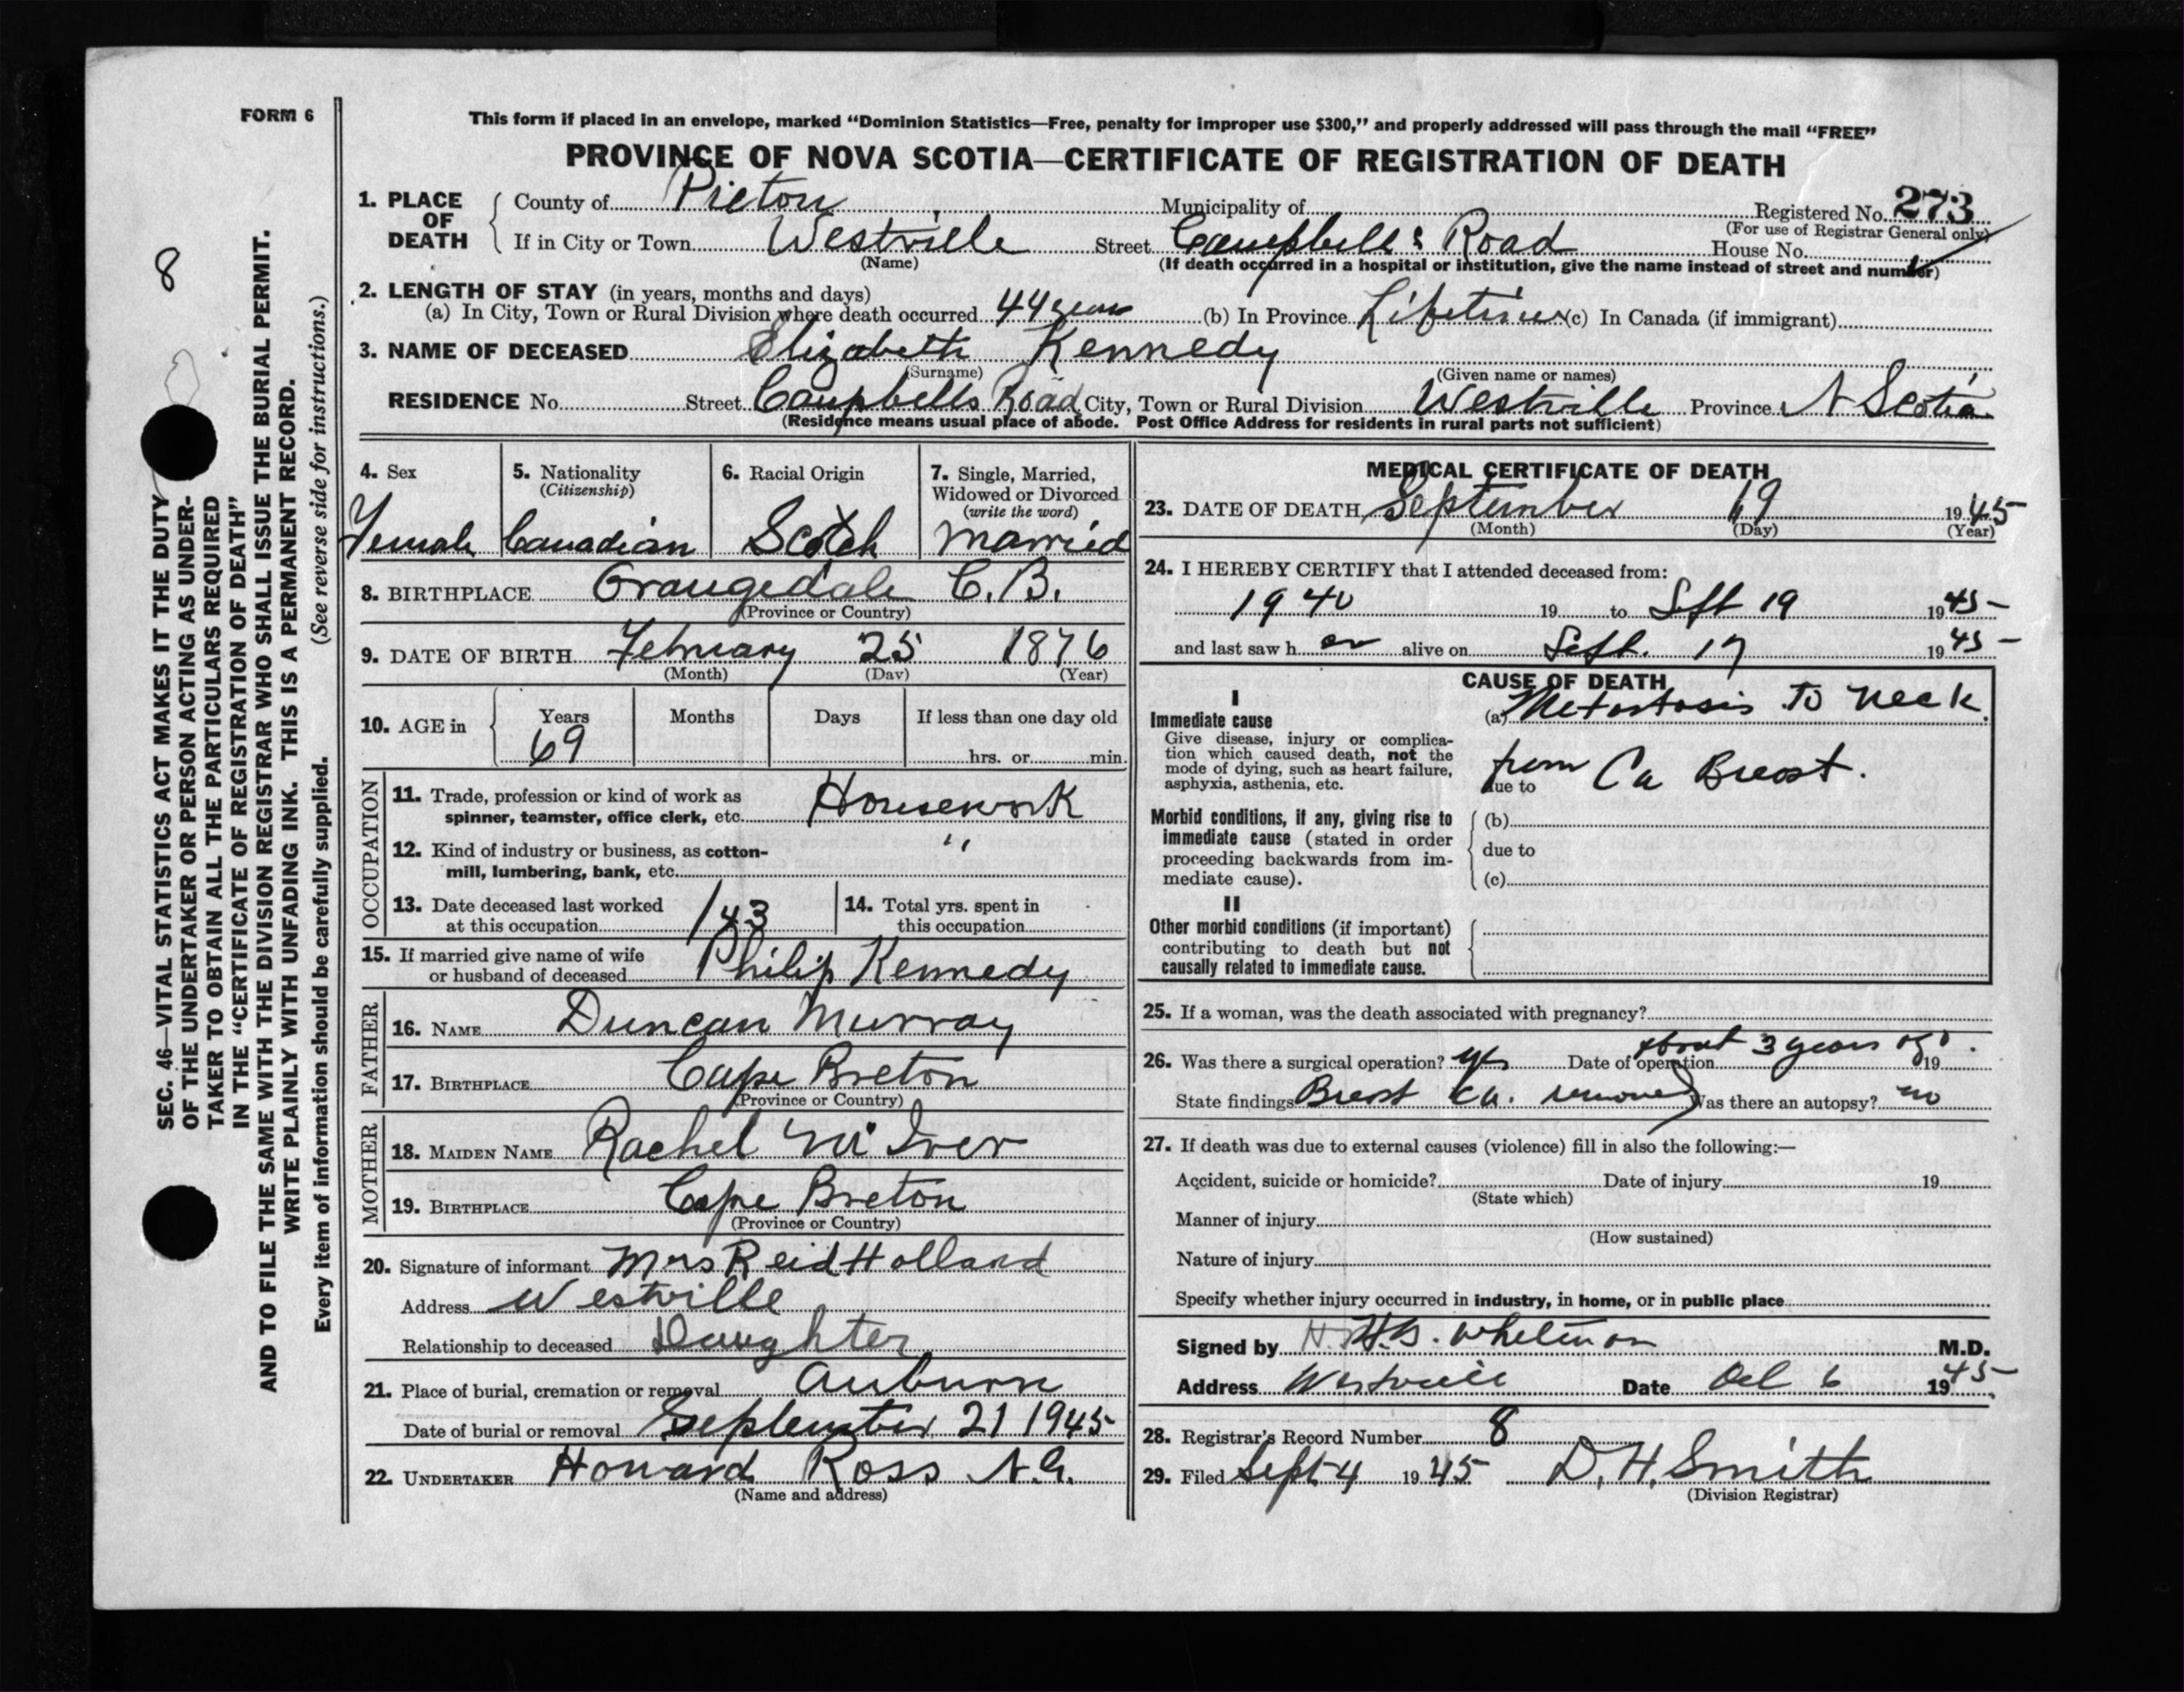 FORM 6
This form if placed in an envelope, marked “Dominion Statistics—Free, penalty for improper use $300,” and properly addressed will pass through the mail “FREE”
PROVINCE OF NOVA SCOTIA—CERTIFICATE OF REGISTRATION OF DEATH
8
SEC. 46—VITAL STATISTICS ACT MAKES IT THE DUTY
OF THE UNDERTAKER OR PERSON ACTING AS UNDER-
TAKER TO OBTAIN ALL THE PARTICULARS REQUIRED
IN THE “CERTIFICATE OF REGISTRATION OF DEATH”
AND TO FILE THE SAME WITH THE DIVISION REGISTRAR WHO SHALL ISSUE THE BURIAL PERMIT.
WRITE PLAINLY WITH UNFADING INK. THIS IS A PERMANENT RECORD.
Every item of information should be carefully supplied. (See reverse side for instructions.)
1. PLACE OF DEATH
County of Pictou Municipality of Registered No. 273
(For use of Registrar General only)
If in City or Town Westville Street Campbells Road House No.
(Name) (If death occurred in a hospital or institution, give the name instead of street and number)
2. LENGTH OF STAY (in years, months and days)
(a) In City, Town or Rural Division where death occurred 44 years (b) In Province Lifetime (c) In Canada (if immigrant)
3. NAME OF DECEASED Elizabeth Kennedy
(Surname) (Given name or names)
RESIDENCE No. Street Campbells Road City, Town or Rural Division Westville Province N Scotia
(Residence means usual place of abode. Post Office Address for residents in rural parts not sufficient)
4. Sex
Female
5. Nationality
(Citizenship)
Canadian
6. Racial Origin
Scotch
7. Single, Married,
Widowed or Divorced
(write the word)
Married
8. BIRTHPLACE Orangedale C.B.
(Province or Country)
9. DATE OF BIRTH February 25 1876
(Month) (Day) (Year)
10. AGE in Years Months Days If less than one day old
69 hrs. or min.
OCCUPATION
11. Trade, profession or kind of work as
spinner, teamster, office clerk, etc. Housework
12. Kind of industry or business, as cotton-
mill, lumbering, bank, etc. "
13. Date deceased last worked
at this occupation 143
14. Total yrs. spent in
this occupation
15. If married give name of wife
or husband of deceased Philip Kennedy
FATHER
16. NAME Duncan Murray
17. BIRTHPLACE Cape Breton
(Province or Country)
MOTHER
18. MAIDEN NAME Rachel Mc Iver
19. BIRTHPLACE Cape Breton
(Province or Country)
20. Signature of informant Mrs Reid Holland
Address Westville
Relationship to deceased Daughter
21. Place of burial, cremation or removal Auburn
Date of burial or removal September 21 1945
22. UNDERTAKER Howard Ross N.G.
(Name and address)
MEDICAL CERTIFICATE OF DEATH
23. DATE OF DEATH September 19 1945
(Month) (Day) (Year)
24. I HEREBY CERTIFY that I attended deceased from:
1940 19 to Sept 19 1945
and last saw her alive on Sept. 17 1945
CAUSE OF DEATH
I
Immediate cause
Give disease, injury or complica-
tion which caused death, not the
mode of dying, such as heart failure,
asphyxia, asthenia, etc.
(a) Metastasis to neck
from Ca Breast.
due to
Morbid conditions, if any, giving rise to
immediate cause (stated in order
proceeding backwards from im-
mediate cause).
(b)
due to
(c)
II
Other morbid conditions (if important)
contributing to death but not
causally related to immediate cause.
25. If a woman, was the death associated with pregnancy?
26. Was there a surgical operation? yes Date of operation about 3 years ago. 19
State findings Breast Ca. removed Was there an autopsy? no
27. If death was due to external causes (violence) fill in also the following:—
Accident, suicide or homicide? Date of injury 19
(State which)
Manner of injury
(How sustained)
Nature of injury
Specify whether injury occurred in industry, in home, or in public place
Signed by H.G. Whitman M.D.
Address Westville Date Oct 6 1945
28. Registrar's Record Number 8
29. Filed Sept 4 1945 D. H. Smith
(Division Registrar)